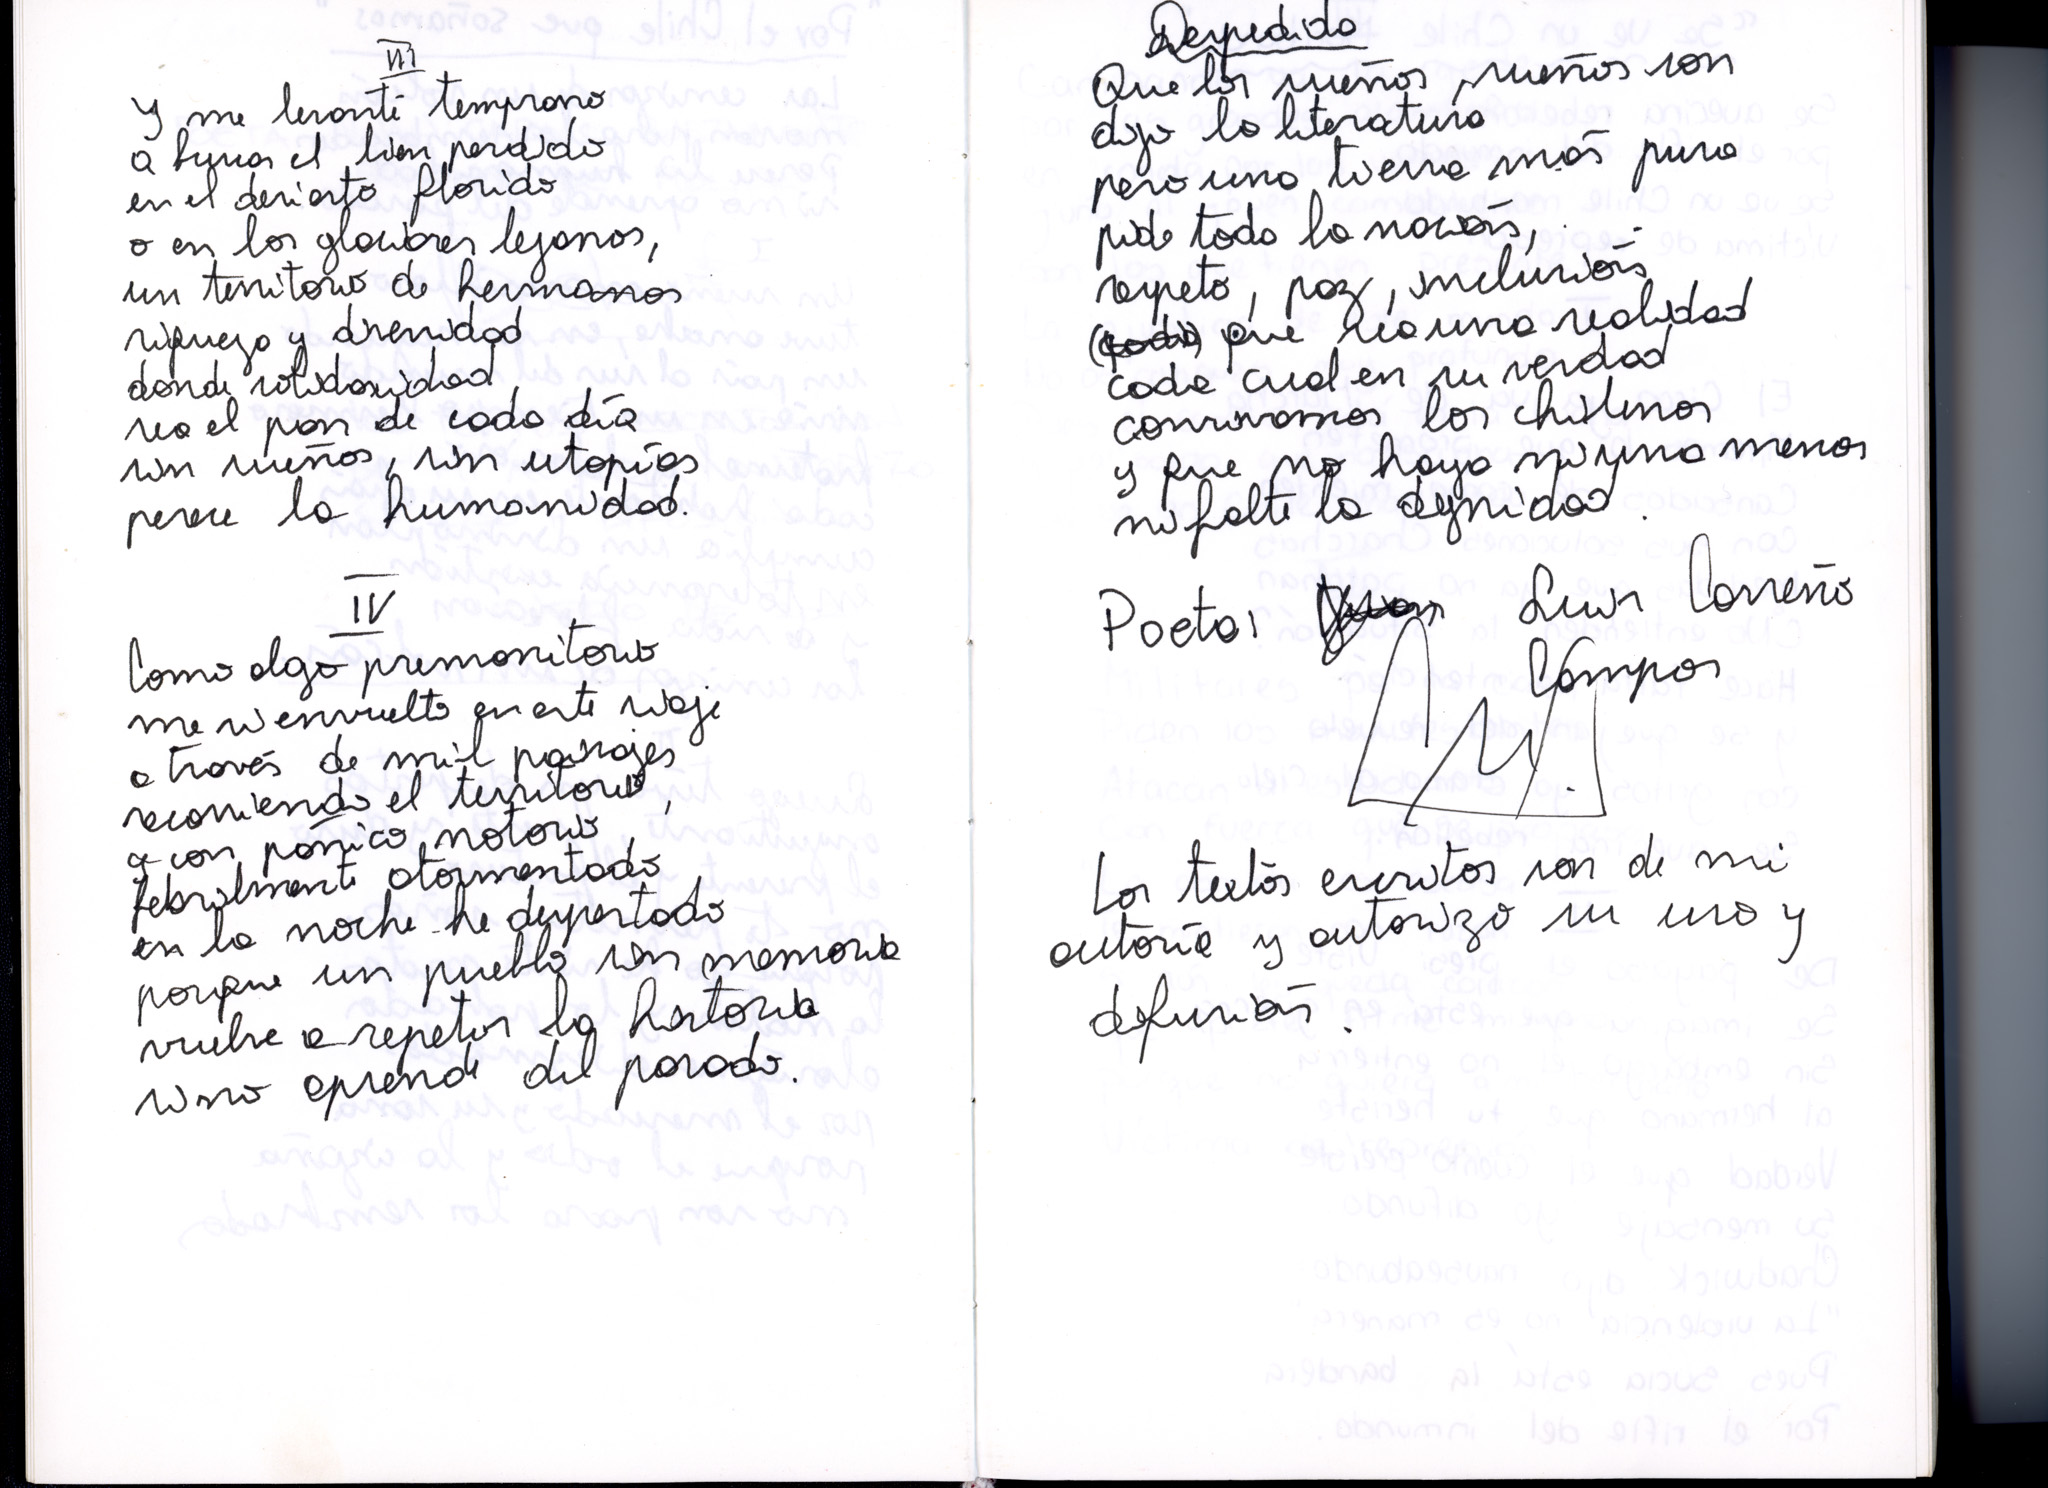 III
Y me levanté temprano
a buscar el bien perdido
en el desierto florido
o en los glaciares lejanos,
un territorio de hermanos
riqueza y disenidad
donde solidaridad
sea el pan de cada día
sin sueños, sin utopías
perece la humanidad.
IV
Como algo premonitorio
me vi envuelto en este viaje
a través de mil paisajes
recorriendo el territorio,
y con pánico notorio
febrilmente atormentado
en la noche he despertado
porque un pueblo sin memoria
vuelve a repetir la historia
si no aprende del pasado.
Despedida
Que los sueños, sueños son
dijo la literatura
pero una tierra más pura
pide toda la nación,
respeto, paz, inclusión
que sea una realidad
cada cual en su verdad
convivamos los chilenos
y que no haya ni uno menos
ni falte la dignidad.
Poeta: Luis Carreño
Campos
Los textos escritos son de mi
autoría y autorizo su uso y
difusión.